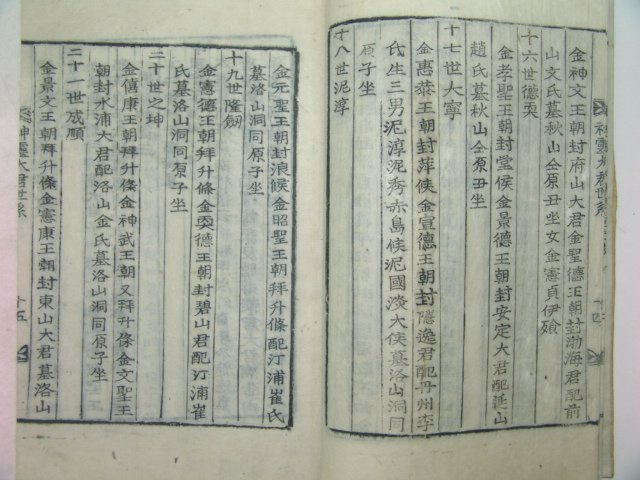 金神文王朝封府山大君金聖德王朝封渤海君配前
山文氏墓秋山仝原丑坐女金憲貞伊飱
十六世德耎
金孝聖王朝封堂候金景德王朝封安定大君配延山
趙氏墓秋山仝原丑坐
十七世大寧
金惠恭王朝封萍候金宣德王朝封隱逸君配丹州李
氏生三男泥淳泥秀赤島候泥國淡大侯墓洛山洞同
原子坐
十八世泥淳
金元聖王朝封浪候金昭聖王朝拜升條配汀浦崔氏
墓洛山洞同原子坐
十九世隆
金憲德王朝拜升條金耎德王朝封碧山君配汀浦崔
氏墓洛山洞同原子坐
二十世之坤
金僖康王朝拜升條金神武王朝又拜升條金文聖王
朝封水浦大君配洛山金氏墓洛山洞同原子坐
二十一世成願
金景文王朝拜升條金憲康王朝封東山大君墓洛山
神靈大君世系
十五